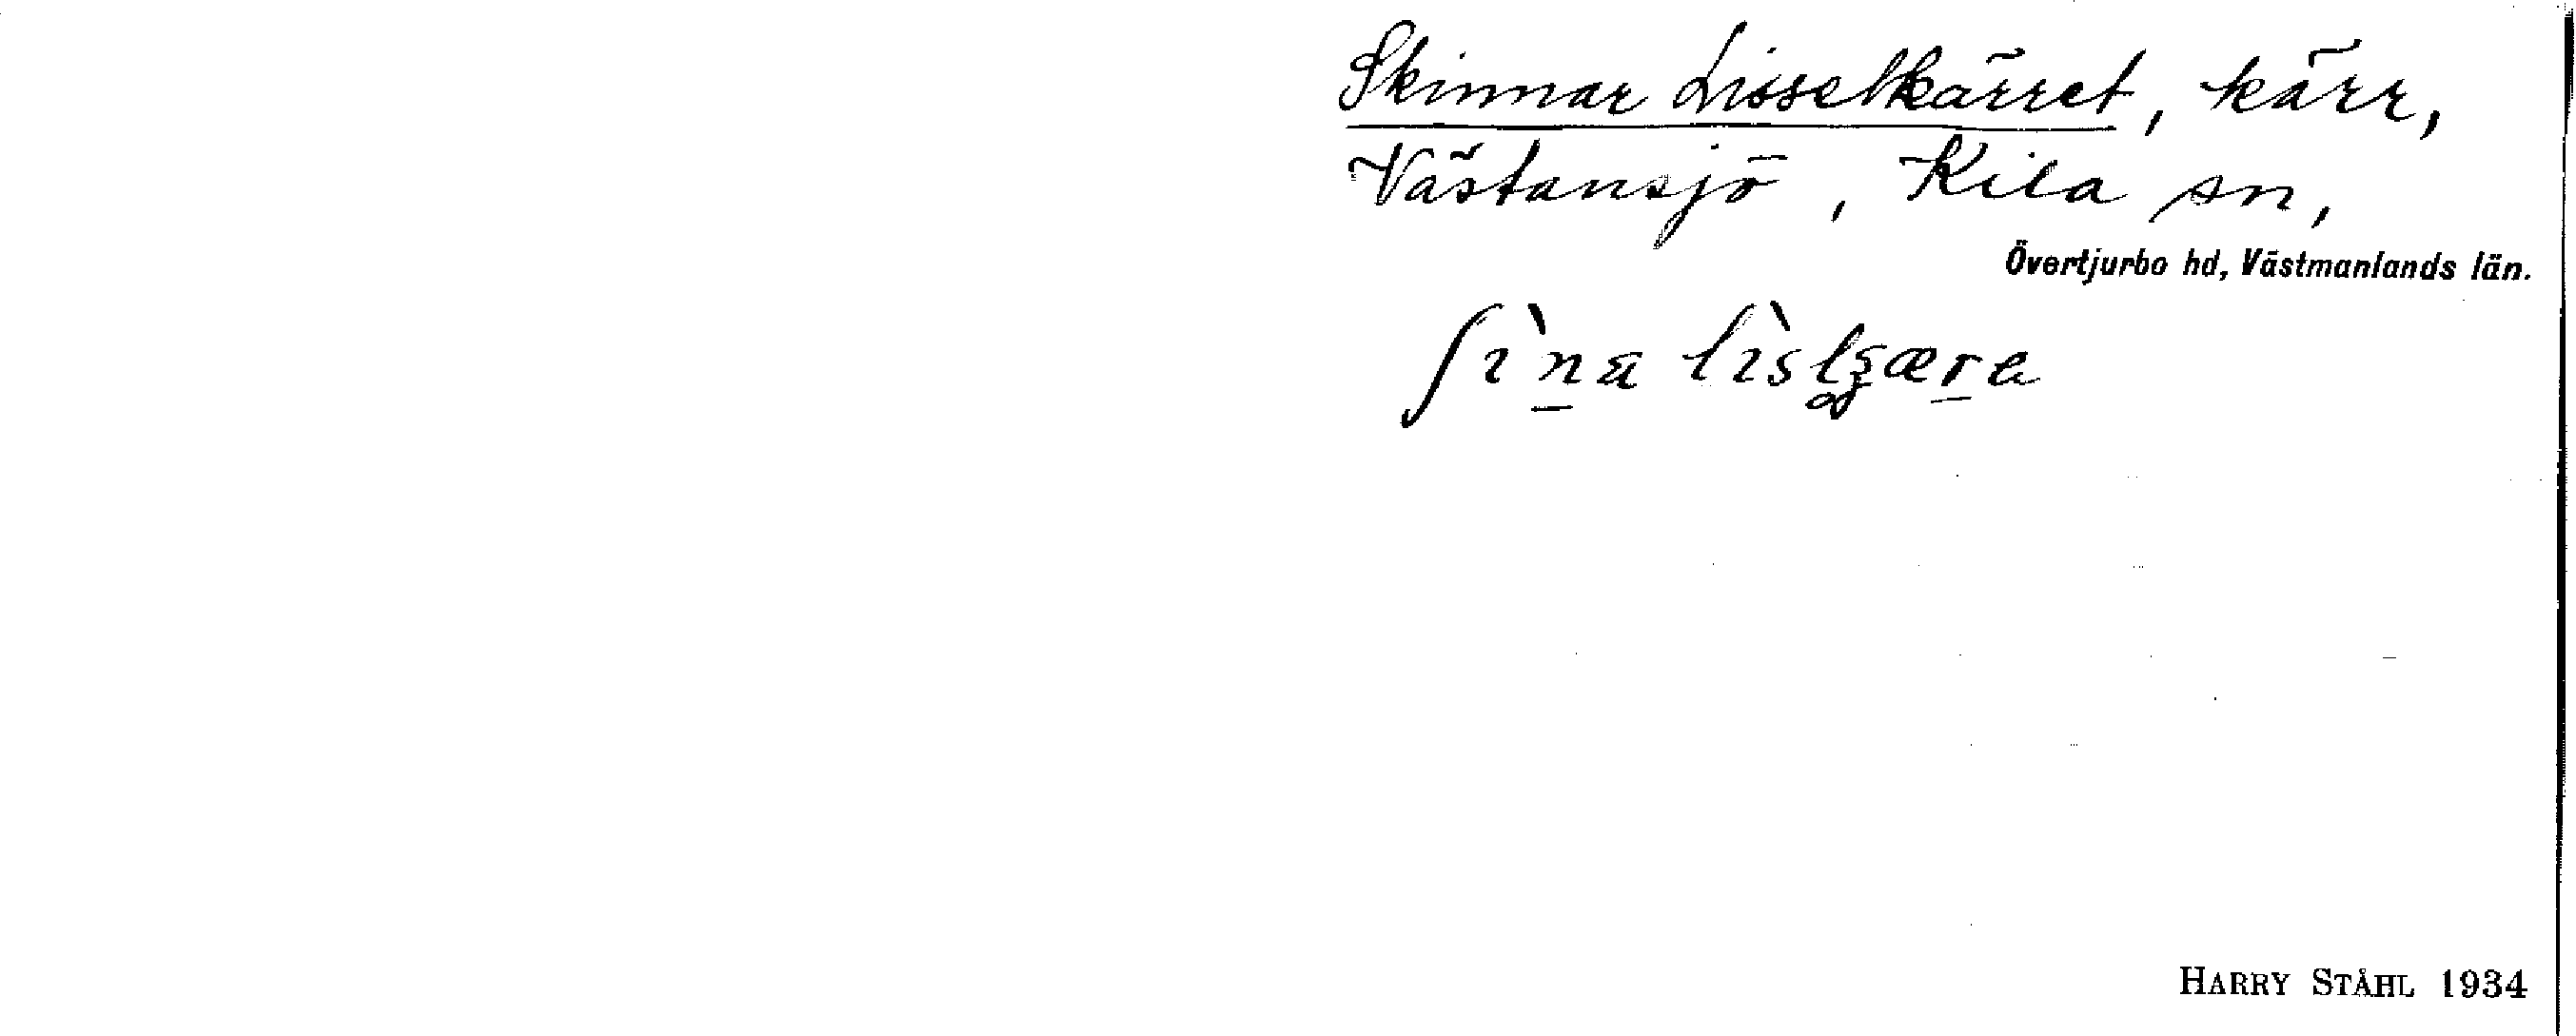 Skinnar Lisselkärret, kärr,
Västansjö, Kila sn,
Övertjurbo hd, Västmanlands län.
HARRY STÅHL 1934